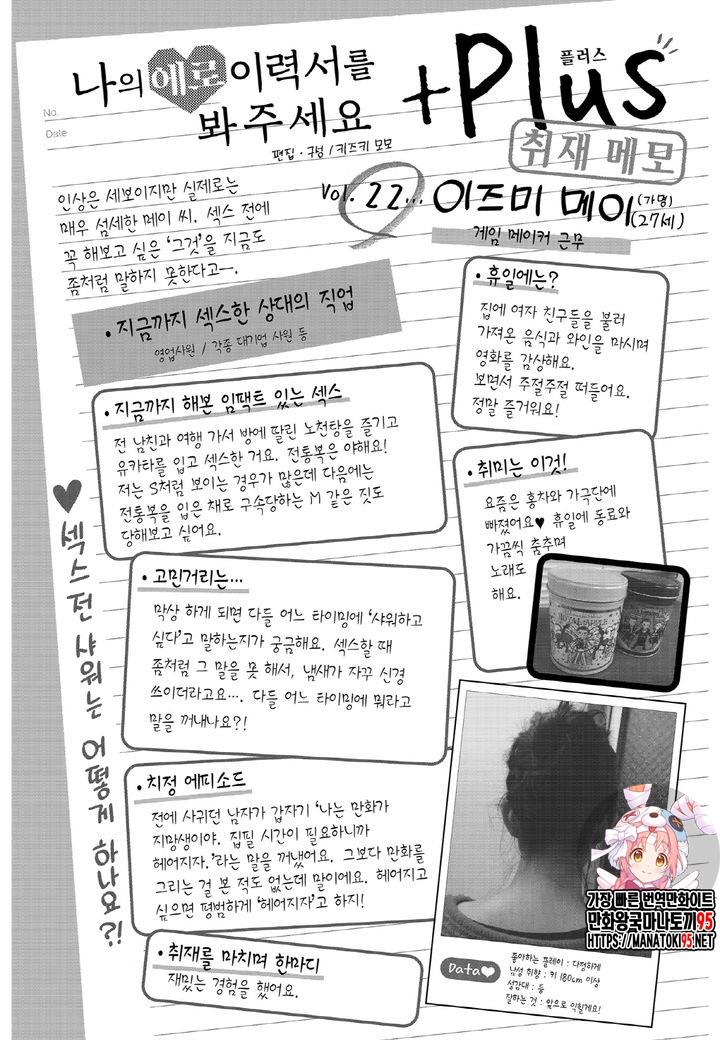 No.
Date
나의 에로 이력서를
봐주세요
+Plus
플러스
취재 메모
편집·구성 / 키즈키 모모
Vol. 22... 이즈미 메이 (가명)
(27세)
게임 메이커 근무
인상은 세보이지만 실제로는
매우 섬세한 메이 씨. 섹스 전에
꼭 해보고 싶은 '그것'을 지금도
좀처럼 말하지 못한다고—.
• 지금까지 섹스한 상대의 직업
영업사원 / 각종 대기업 사원 등
• 지금까지 해본 임팩트 있는 섹스
전 남친과 여행 가서 방에 딸린 노천탕을 즐기고
유카타를 입고 섹스한 거요. 전통복은 야해요!
저는 S처럼 보이는 경우가 많은데 다음에는
전통복을 입은 채로 구속당하는 M 같은 짓도
당해보고 싶어요.
• 고민거리는...
막상 하게 되면 다들 어느 타이밍에 '샤워하고
싶다'고 말하는지가 궁금해요. 섹스할 때
좀처럼 그 말을 못 해서, 냄새가 자꾸 신경
쓰이더라고요.... 다들 어느 타이밍에 뭐라고
말을 꺼내나요?!
• 치정 에피소드
전에 사귀던 남자가 갑자기 '나는 만화가
지망생이야. 집필 시간이 필요하니까
헤어지자.'라는 말을 꺼냈어요. 그보다 만화를
그리는 걸 본 적도 없는데 말이에요. 헤어지고
싶으면 평범하게 '헤어지자'고 하지!
• 취재를 마치며 한마디
재밌는 경험을 했어요.
♥섹스 전 샤워는 어떻게 하나요?!
• 휴일에는?
집에 여자 친구들을 불러
가져온 음식과 와인을 마시며
영화를 감상해요.
보면서 주절주절 떠들어요.
정말 즐거워요!
• 취미는 이것!
요즘은 홍차와 가극단에
빠졌어요♥ 휴일에 동료와
가끔씩 춤추며
노래도
해요.
Data♥
좋아하는 플레이 : 다정하게
남성 취향 : 키 180cm 이상
성감대 : 등
잘하는 것 : 앞으로 익힐게요!
가장 빠른 번역만화이트
만화왕국마나토끼95
HTTPS://MANATOKI95.NET